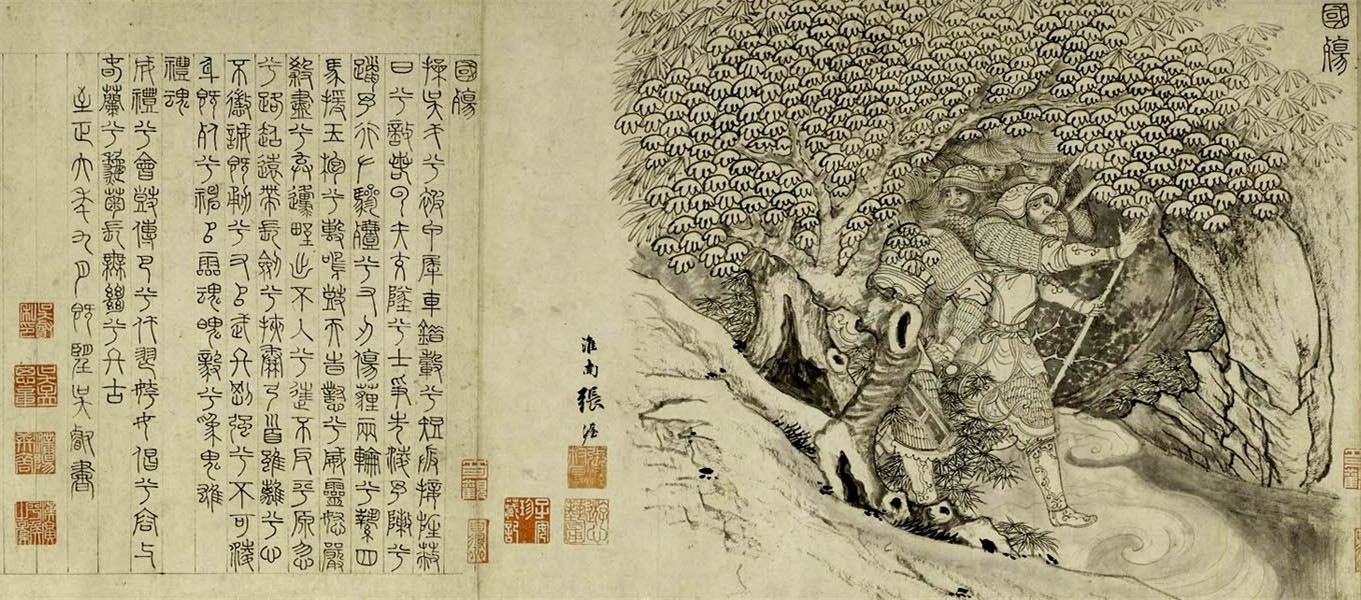 國殤
淮南張渥
國殤
操吳戈兮被犀甲車錯轂兮短兵接旌蔽
日兮敵若雲矢交墜兮士爭先凌余陳兮
躐余行左驂殪兮右刃傷霾兩輪兮縶四
馬援玉枹兮擊鳴鼓天時懟兮威靈怒嚴
殺盡兮棄原壄出不入兮往不反平原忽
兮路超遠帶長劍兮挾秦弓首雖離兮心
不懲誠既勇兮又以武終剛強兮不可凌
身既死兮神以靈魂魄毅兮為鬼雄
禮魂
成禮兮會鼓傳芭兮代舞姱女倡兮容與
春蘭兮秋菊長無絕兮終古
至正六年九月既望吳叡書